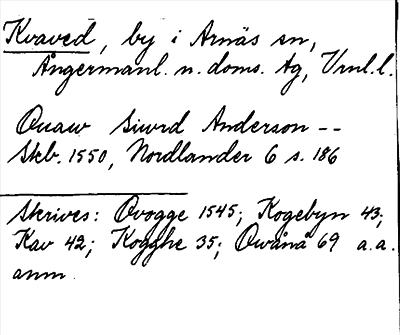 Kvaved, by i Arnäs sn,
Ångermanl. n. doms. tg, Vrnl.l.
Quaw Siwrd Anderson --
Skb. 1550, Nordlander 6 s. 186
Skrives: Qvogge 1545; Kogebyn 43;
Kav 42; Kogghe 35; Qwånå 69 a.a.
anm.